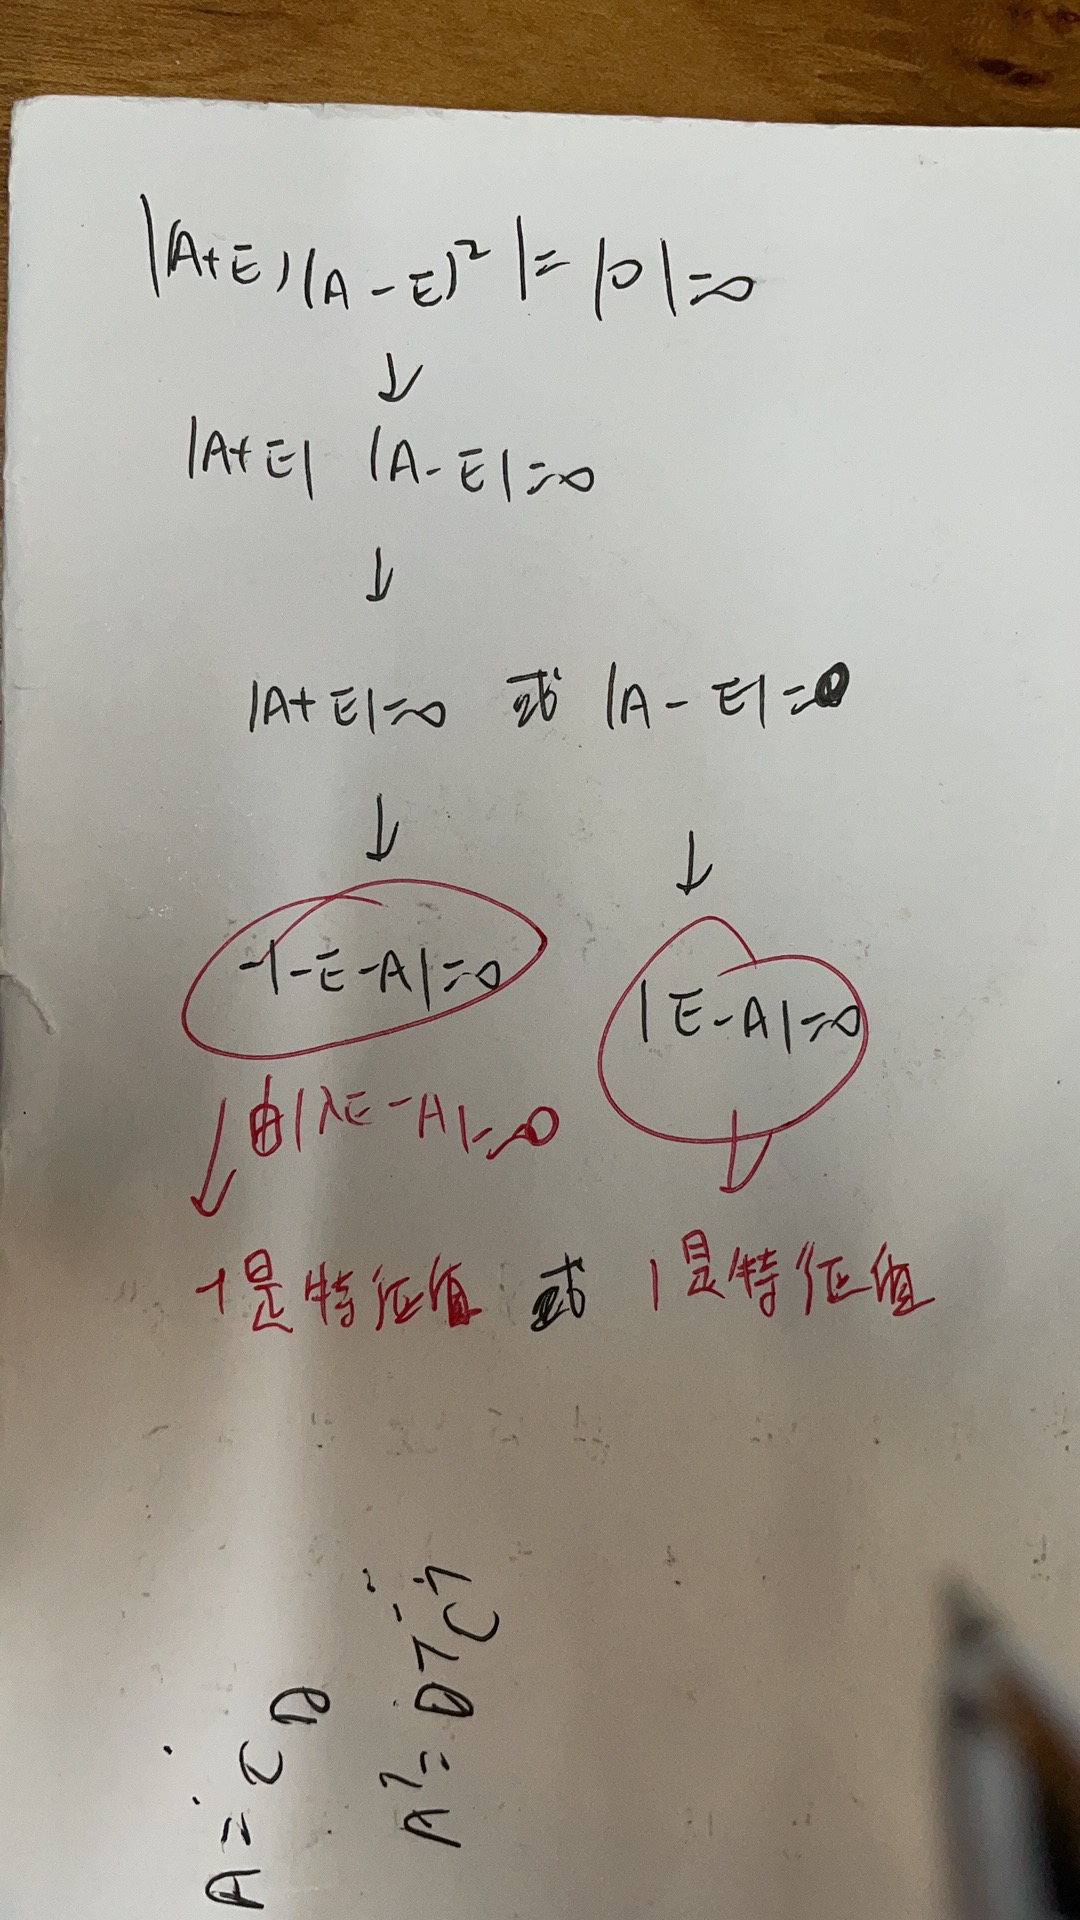 |(A+E)(A-E)²|=|0|=0
↓
|A+E| |A-E|=0
↓
|A+E|=0 或 |A-E|=0
↓ ↓
-|-E-A|=0 |E-A|=0
↓ 由|λE-A|=0 ↓
-1是特征值 或 1是特征值
A=CD
A⁻¹=D⁻¹C⁻¹